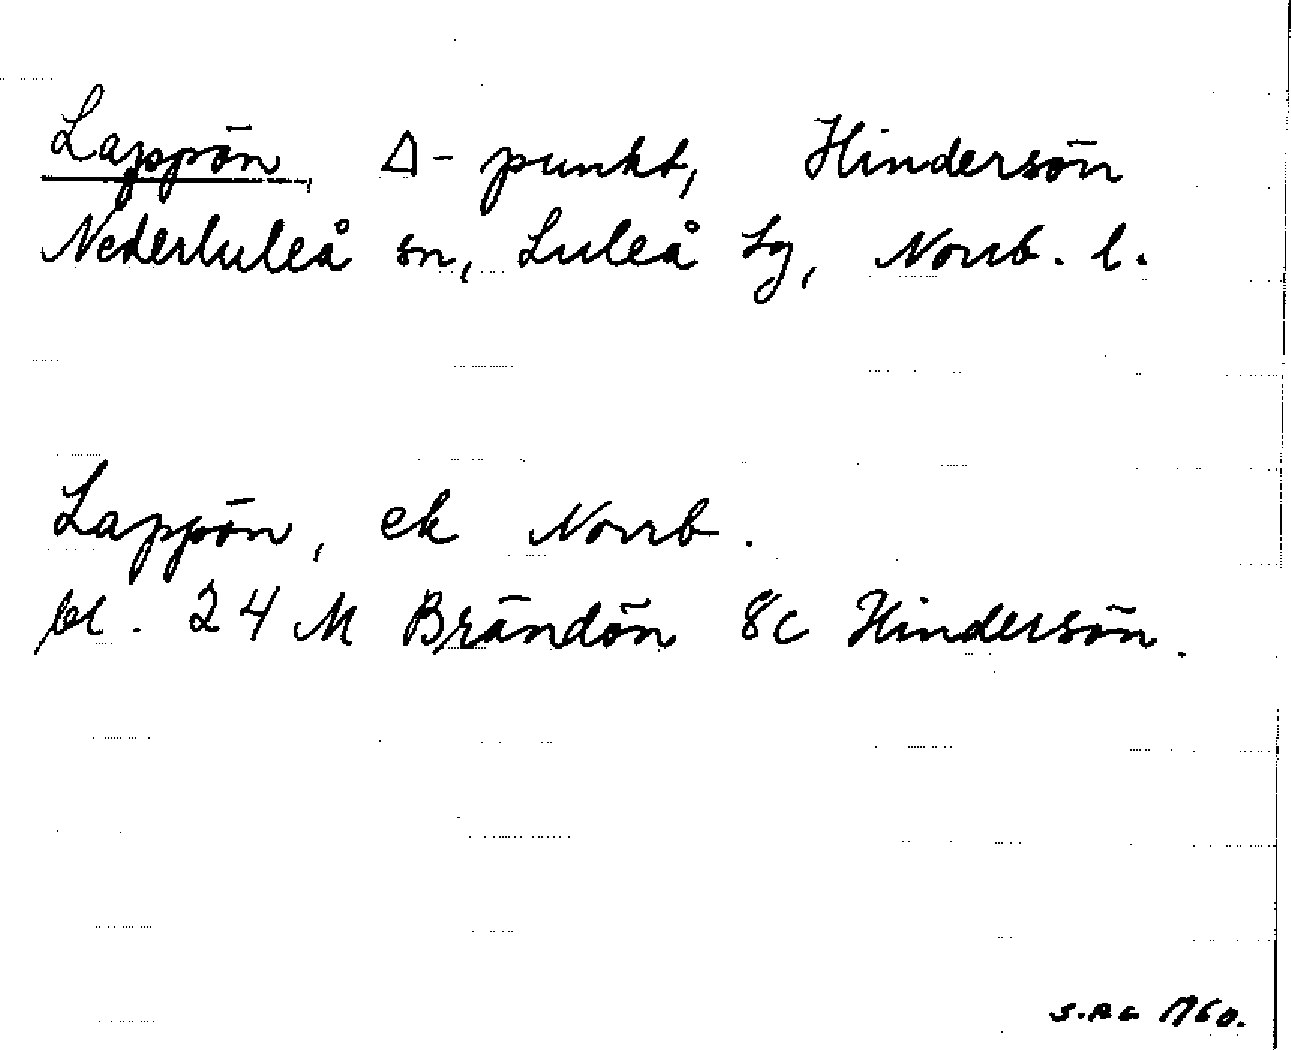 Lappön, Δ-punkt, Hindersön
Nederluleå sn, Luleå tg, Norrb. l.
Lappön, ek Norrb.
bl. 24 M Brändön 8c Hindersön.
1960.